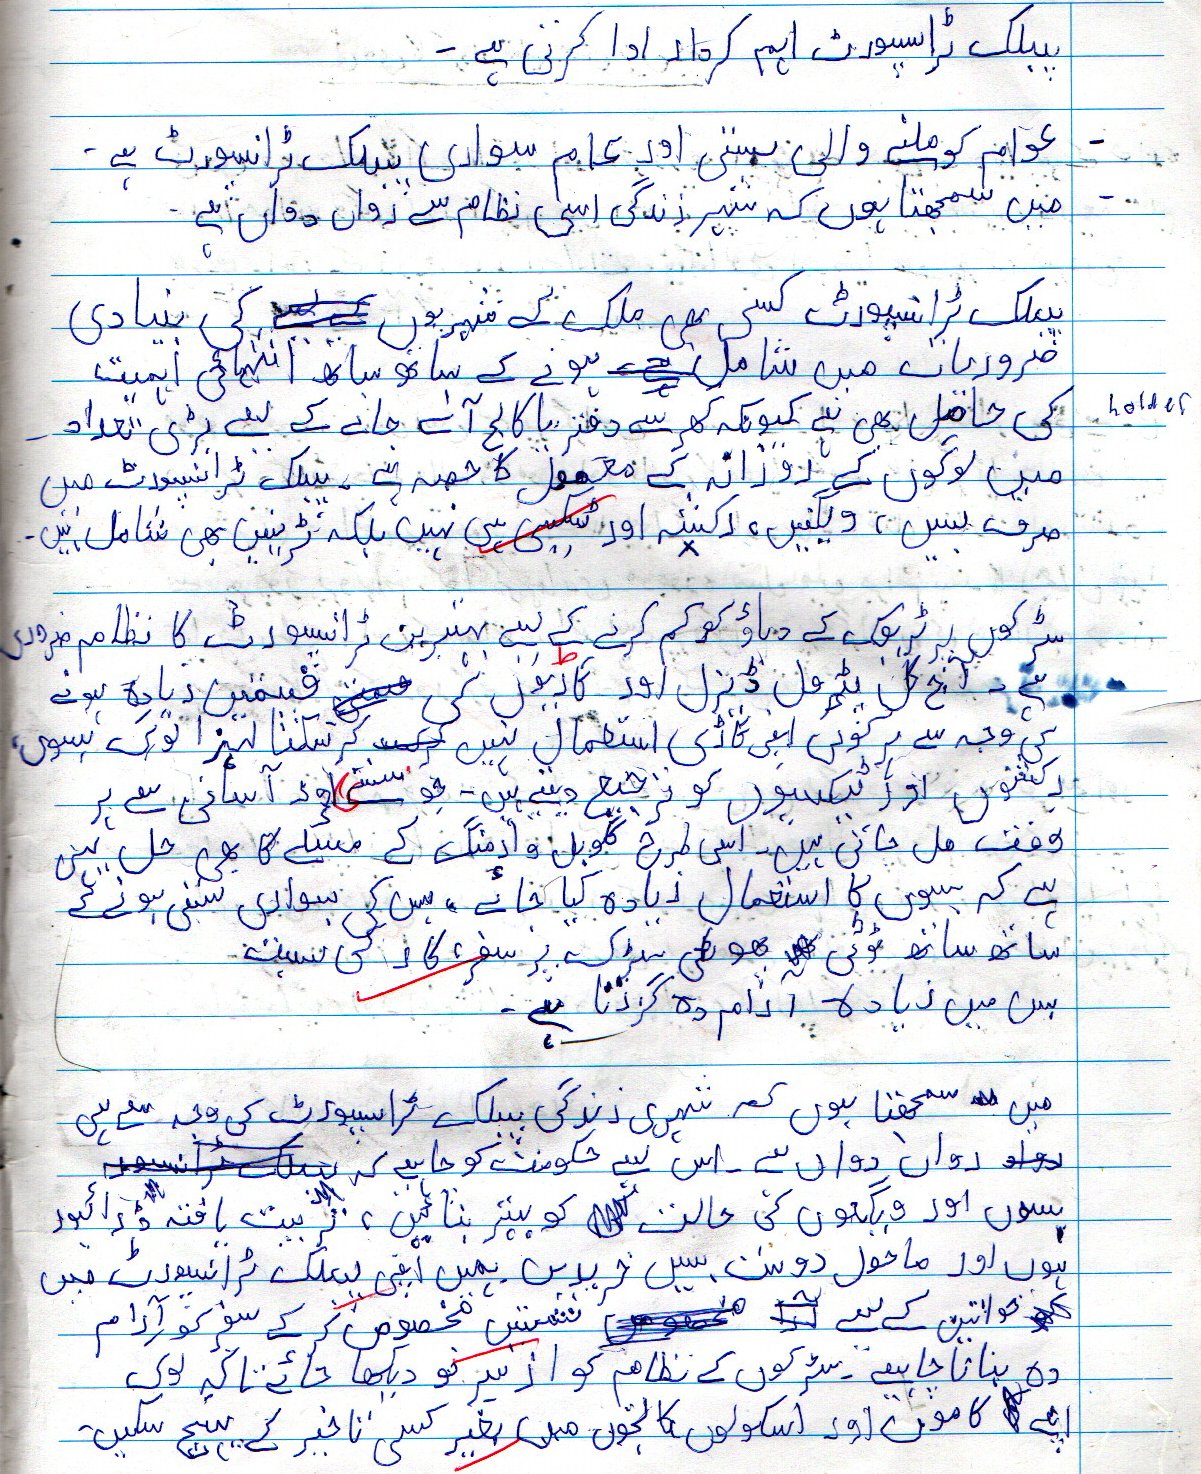 پبلک ٹراسپورٹ اہم کردار ادا کرتی ہے -
- عوام کو ملنے والی سستی اور عام سواری پبلک ٹرانسورٹ ہے -
- میں سمجھتا ہوں کہ شہر زندگی اسی نظام سے رواں دواں ہے -
پبلک ٹرانسپورٹ کسی بھی ملک کے شہریوں کی بنیادی
ضروریات میں شامل ہونے کے ساتھ ساتھ انتہائی اہمیت
کی حامل بھی ہے کیونکہ گھر سے دفتر یا کالج آنے جانے کے لیے بڑی تعداد
میں لوگوں کے روزانہ کے معمول کا حصہ ہے ۔ پبلک ٹرانسپورٹ میں
صرف بسیں، ویگنیں، رکشہ اور ٹیکسی ہی نہیں بلکہ ٹرینیں بھی شامل ہیں -
سڑکوں پر ٹریفک کے دباؤ کو کم کرنے کے لیے بہترین ٹرانسپورٹ کا نظام ضروری
ہے ۔ آج کل پٹرول ڈیزل اور گاڑیوں کی قیمتیں زیادہ ہونے
کی وجہ سے ہر کوئی اپنی گاڑی استعمال نہیں کر سکتا لہٰزا لوگ بسوں،
رکشوں اور ٹیکسیوں کو ترجیح دیتے ہیں - جو سستی اور آسانی سے ہر
وقت مل جاتی ہیں ۔ اسی طرح گلوبل وارمنگ کے مسئلے کا بھی حل یہی
ہے کہ بسوں کا استعمال زیادہ کیا جائے ، بس کی سواری سستی ہونے کے
ساتھ ساتھ ٹوٹی پھوٹی سڑک پر سفر، کار کی نسبت
بس میں زیادہ آرام دہ گزرتا ہے -
میں سمجھتا ہوں کہ شہری زندگی پبلک ٹراسپورٹ کی وجہ سے ہی
رواں دواں ہے ۔ اس لیے حکومت کو چاہیے کہ
بسوں اور ویگنوں کی حالت کو بہتر بنائیں ، تربیت یافتہ ڈرائیور
ہوں اور ماحول دوست بسیں خریدیں ۔ ہمیں اپنی پبلک ٹرانسپورٹ میں
خواتین کے لیے نشستیں مخصوص کر کے سفر کو آرام
دہ بنانا چاہیے ۔ سڑکوں کے نظام کو از سر نو دیکھا جائے تاکہ لوگ
اپنے کاموں اور اسکولوں کالجوں میں بغیر کسی تاخیر کے پہنچ سکیں -